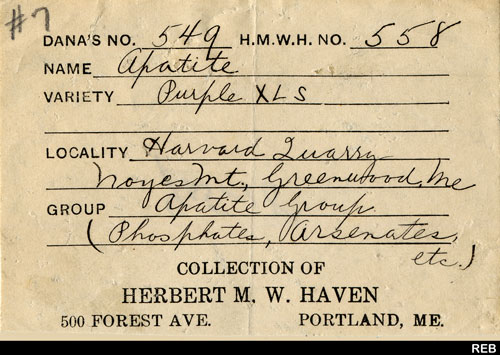 #7
DANA'S NO. 549 H.M.W.H. NO. 558
NAME Apatite
VARIETY Purple XLS
LOCALITY Harvard Quarry
Noyes Mt., Greenwood, Me
GROUP Apatite Group
(Phosphates, Arsenates,
etc.)
COLLECTION OF
HERBERT M. W. HAVEN
500 FOREST AVE. PORTLAND, ME.
REB